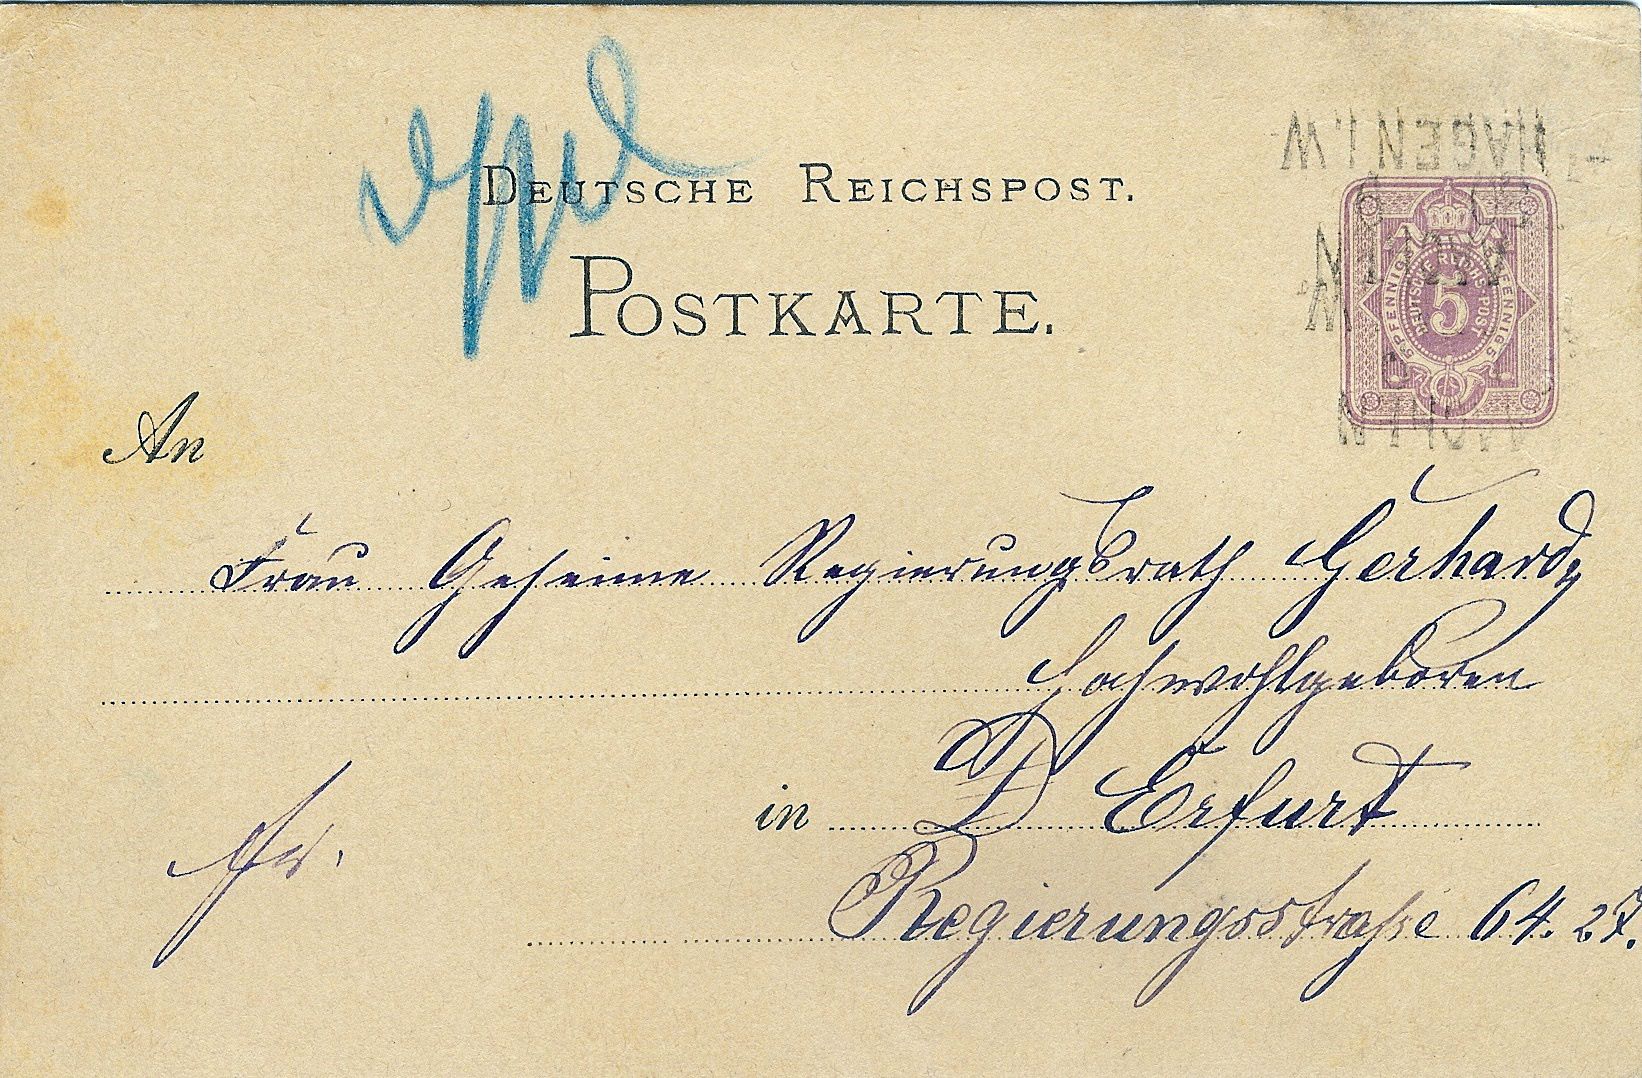 DEUTSCHE REICHSPOST.
POSTKARTE.
HAGEN I.W.
5 PFENNIG 5 PFENNIG 5
DEUTSCHE REICHS-POST
5
An
Frau Geheime Regierungsrath Gerhardy
Hochwohlgeboren
in Erfurt
Fr.
Regierungsstraße 64. 27.